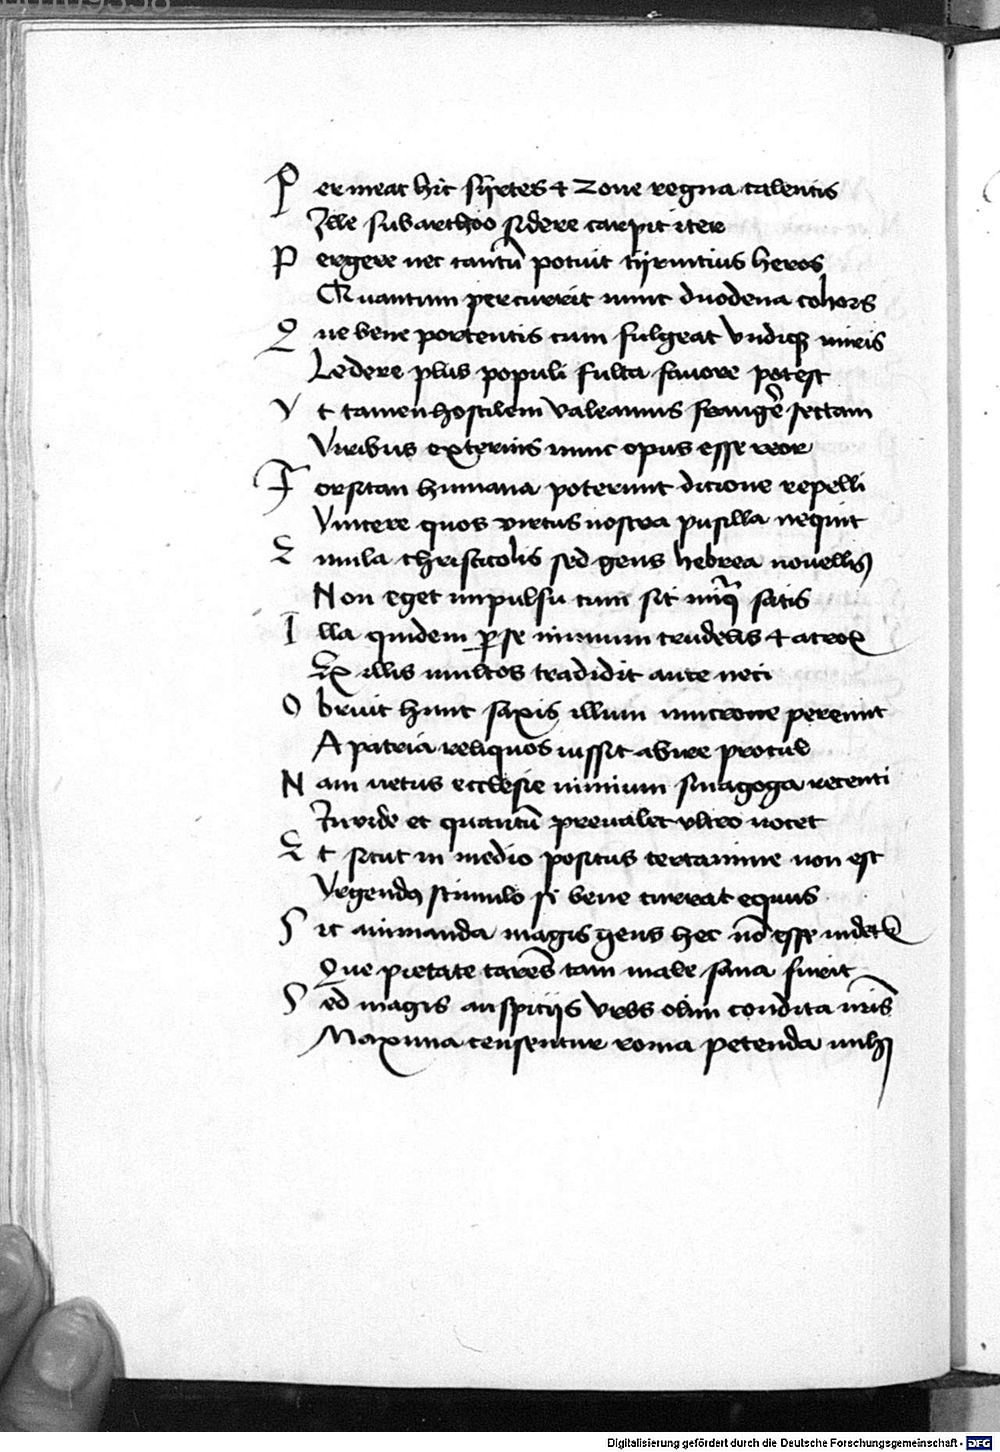 Permeat hic sijrtes & Zone regna calentis
Ille sub arthoo sidere carpit iter
Pergere nec tantũ potuit tijrintius heros
Quantum percurrit nunc duodena cohors
Que bene portentis cum fulgeat vndiqꝫ miris
Ledere plus populi fulta fauore potest
Vt tamen hostilem valeamus frangẽ sectam
Viribus externis nunc opus esse reor
Forsitan humana poterunt dicione repelli
Vincere quos virtus nostra pusilla nequit
Emula christicolis sed gens hebrea nouellis
Non eget impulsu cum sit satis
Illa quidem ꝑ se nimium crudelis & atrox
Ex illis multos tradidit ante neci
Obruit hunc saxis illum mucrone peremit
A patria reliquos iussit abire procul
Nam uetus ecclesie nimium sinagoga recenti
Inuide et quantũ preualet vltro nocet
Et sicut in medio positus certamine non est
Vrgendꝰ stimulo si bene currat equus
Sic animanda magis gens hec nõ esse
Que pietate carẽs tam male sana furit
Sed magis auspicijs vrbs olim condita nr̃is
Maxima censentur roma petenda mihi
Digitalisierung gefördert durch die Deutsche Forschungsgemeinschaft - DFG